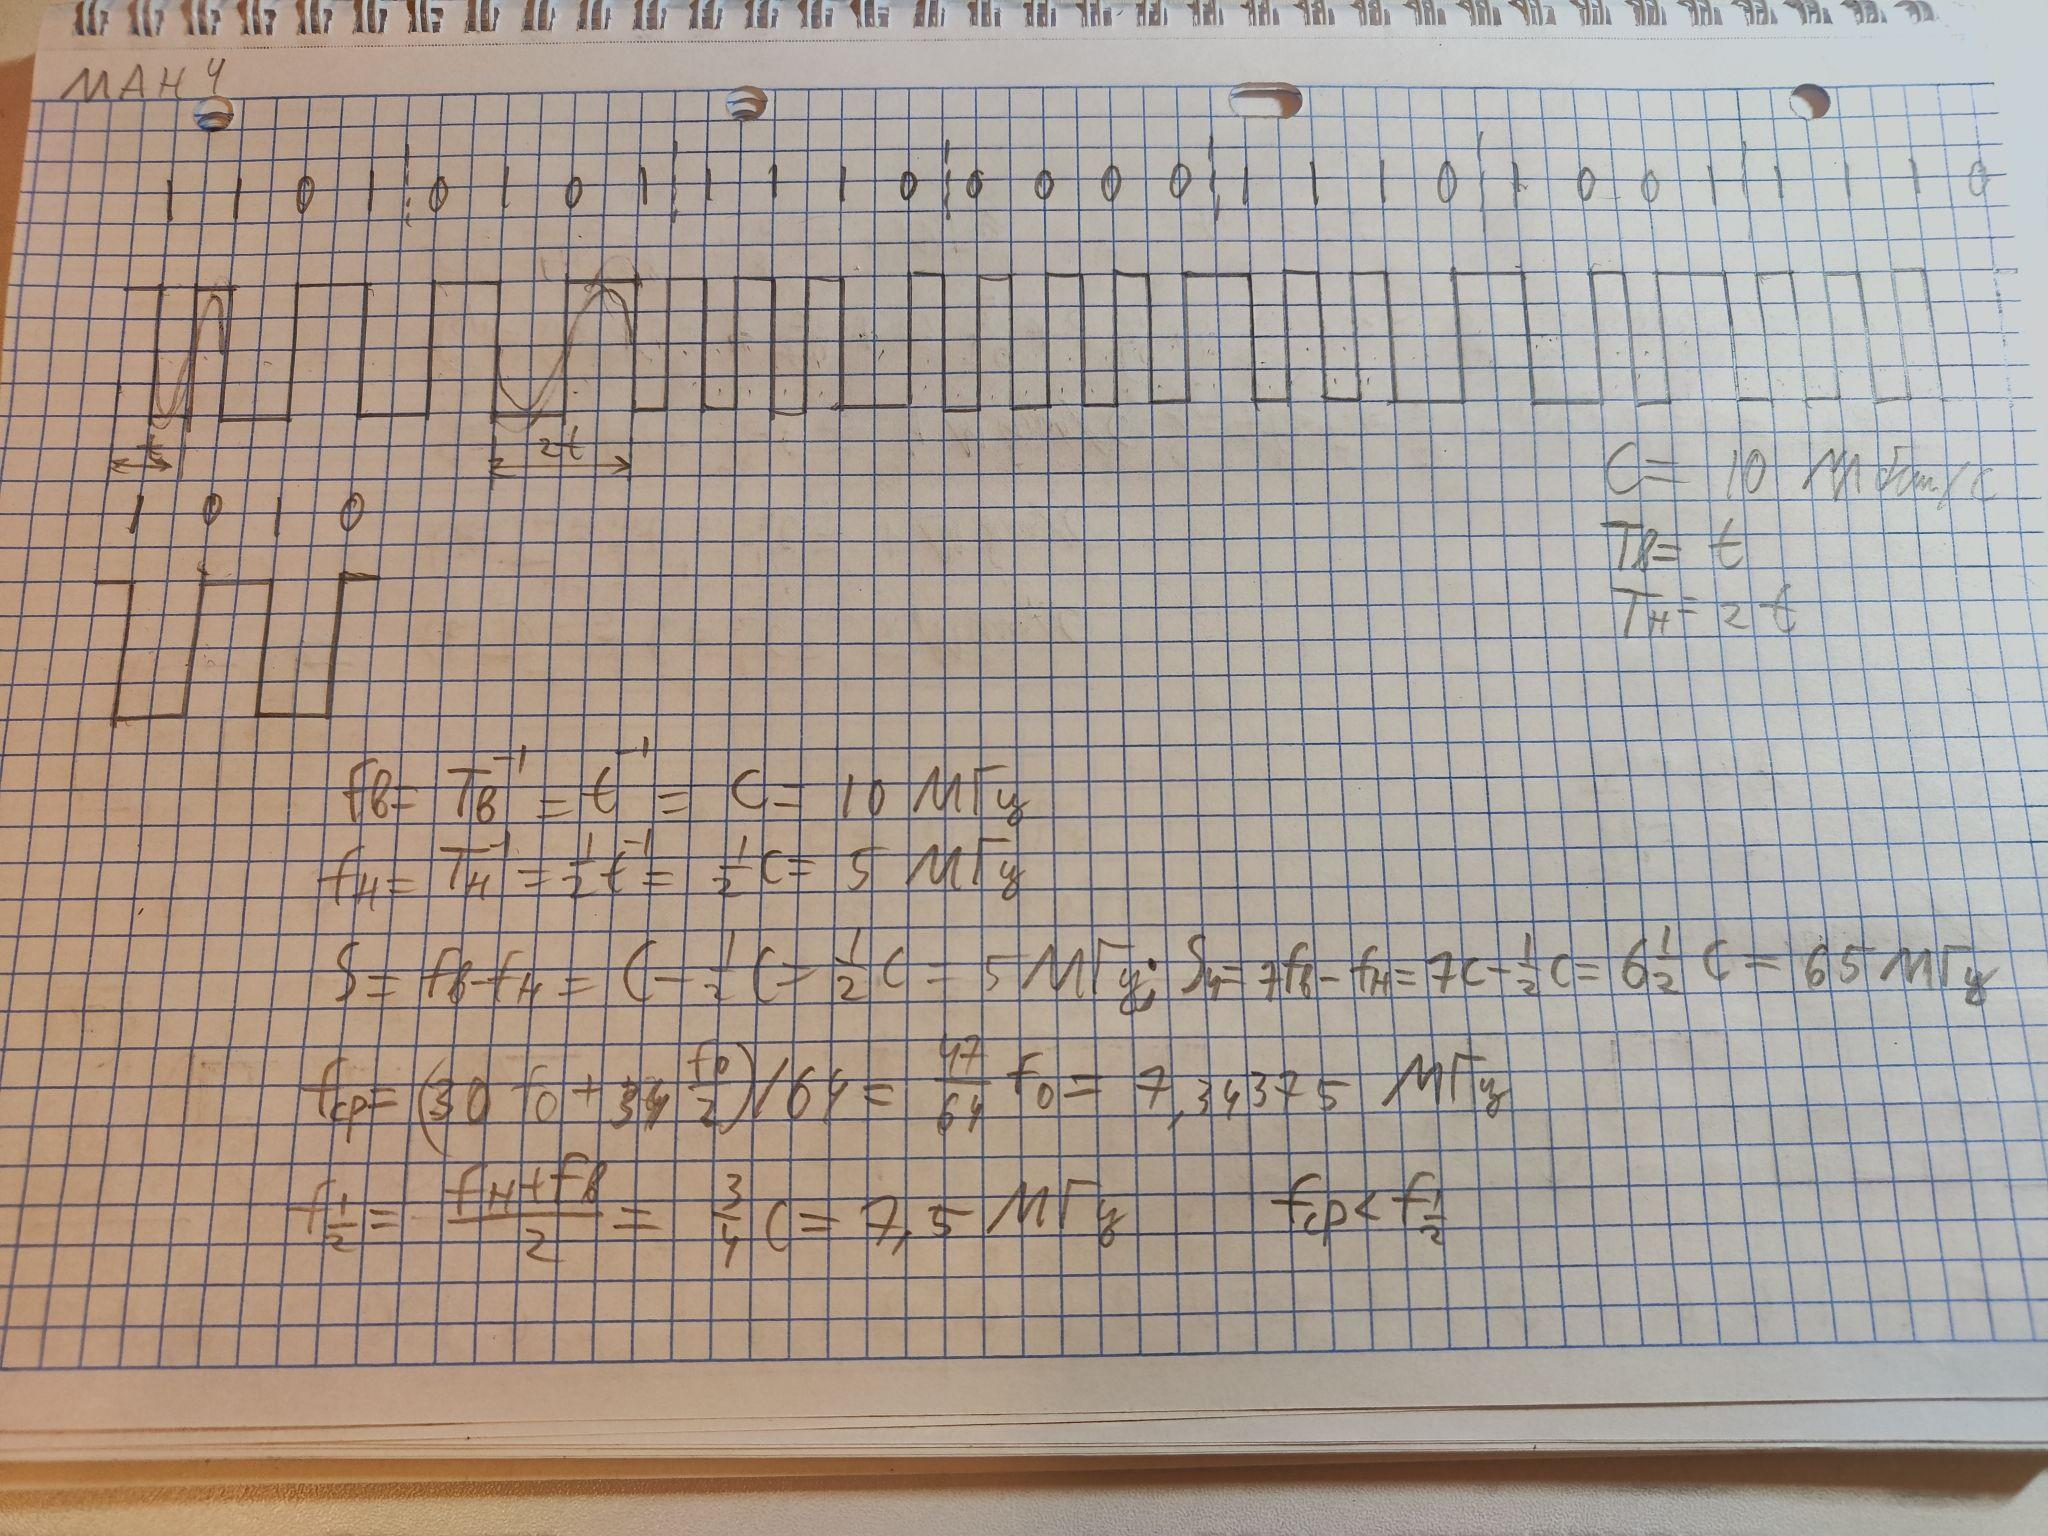 МАН 4
1 1 0 1 0 1 0 1 1 1 1 0 0 0 0 0 1 1 1 0 1 0 0 1 1 1 1 0
t 2t
C = 10 Мбит/с
1 0 1 0
Tв = t
Tн = 2t
fв = Tв⁻¹ = t⁻¹ = C = 10 МГц
fн = Tн⁻¹ = 1/2 t⁻¹ = 1/2 C = 5 МГц
S = fв - fн = C - 1/2 C = 1/2 C = 5 МГц; S4 = 7fв - fн = 7C - 1/2 C = 6 1/2 C = 65 МГц
fср = (30 f0 + 34 f0/2)/64 = 47/64 f0 = 7,34375 МГц
f1/2 = (fн + fв)/2 = 3/4 C = 7,5 МГц fср < f1/2